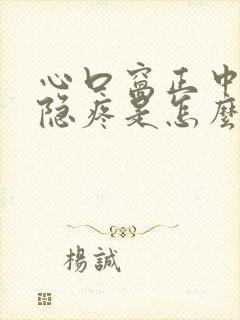 心口窝正中
隐疼是怎麼
楊誠